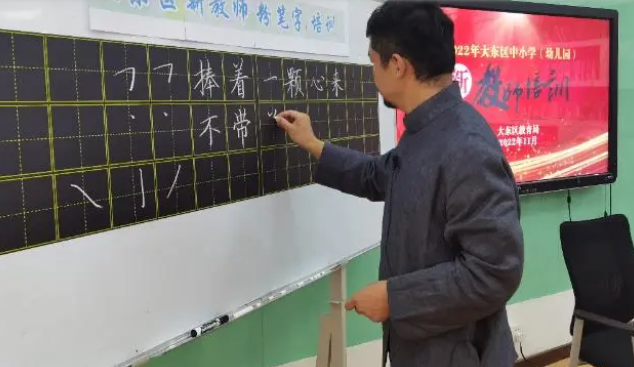 东区新教师粉笔字培训
捧着一颗心来
不带
2022年大东区中小学（幼儿园）
新教师培训
大东区教育局
2022年11月